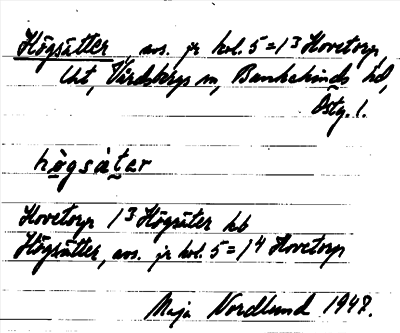 Högsätter, avs. jr kol. 5 = 1³ Hovetorp,
Urt, Vårdsbergs sn, Bankekinds hd,
Östg. l.
hògsàter
Hovetorp 1³ Högsäter hb
Högsätter, avs. jr kol. 5 = 1⁴ Hovetorp
Maja Nordlund 1947.